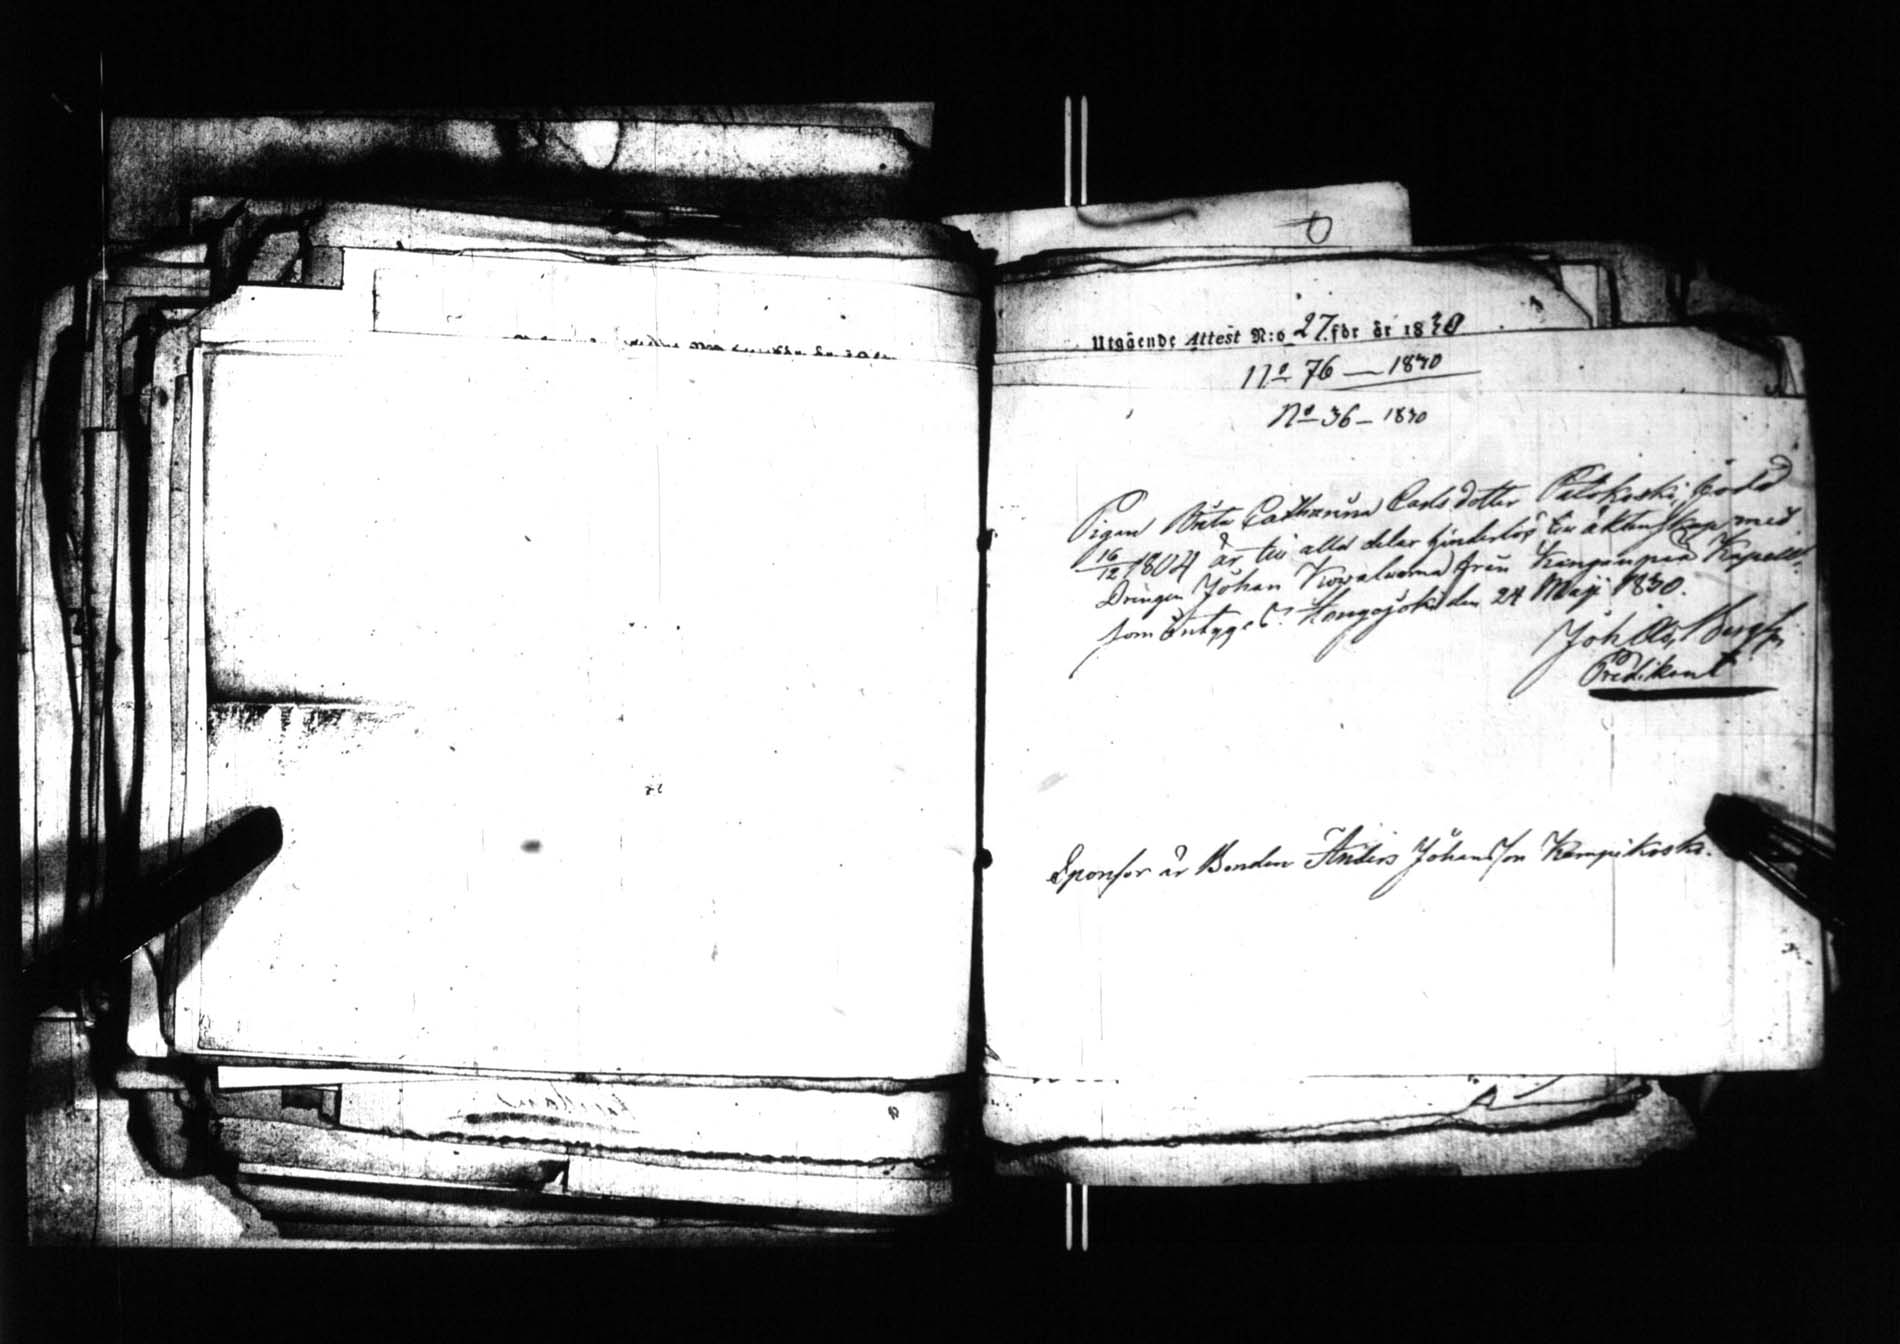 Utgående Attest N:o 27. för år 1830
No 76 — 1830
No 36 — 1830
Pigan Brita Catharina Carlsdotter född
16/12 1804 är till alla delar hinderlös til äktenskap med
Drängen Johan från Kanganpää Kapell.
som intygas. den 24 Maji 1830.
Joh
Predikant
Sponsor är Bonden Anders Johansson Kampikoski.